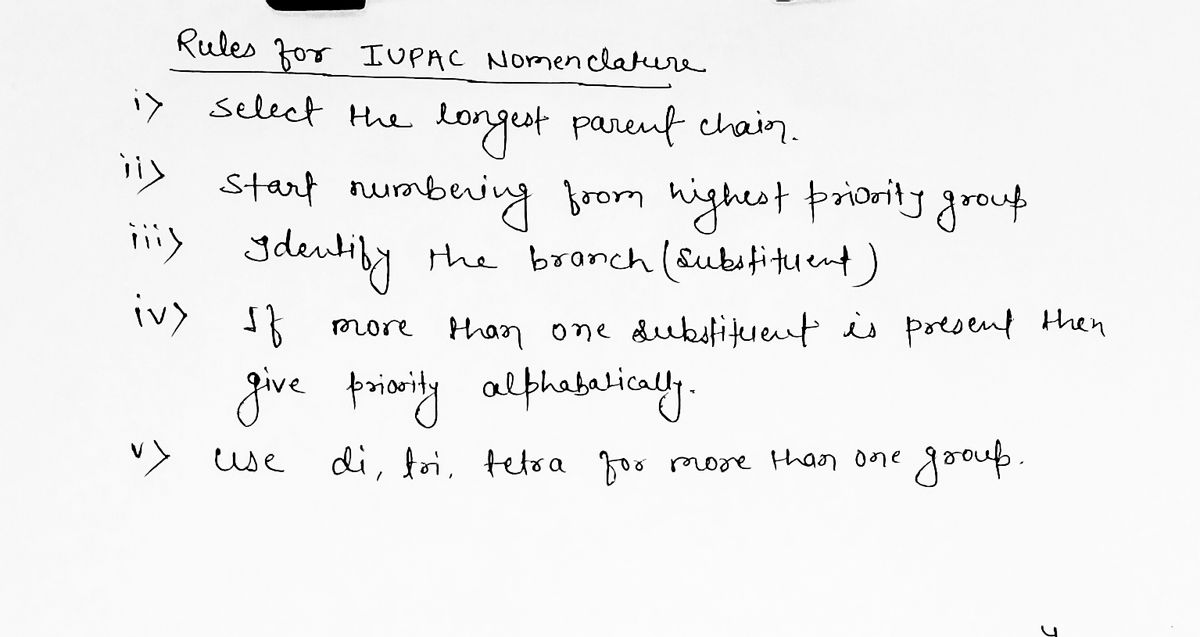 Rules for IUPAC Nomenclature
i> select the longest parent chain.
ii> Start numbering from highest priority group
iii> Identify the branch (substituent)
iv> If more than one substituent is present then
give priority alphabatically.
v> use di, tri, tetra for more than one group.